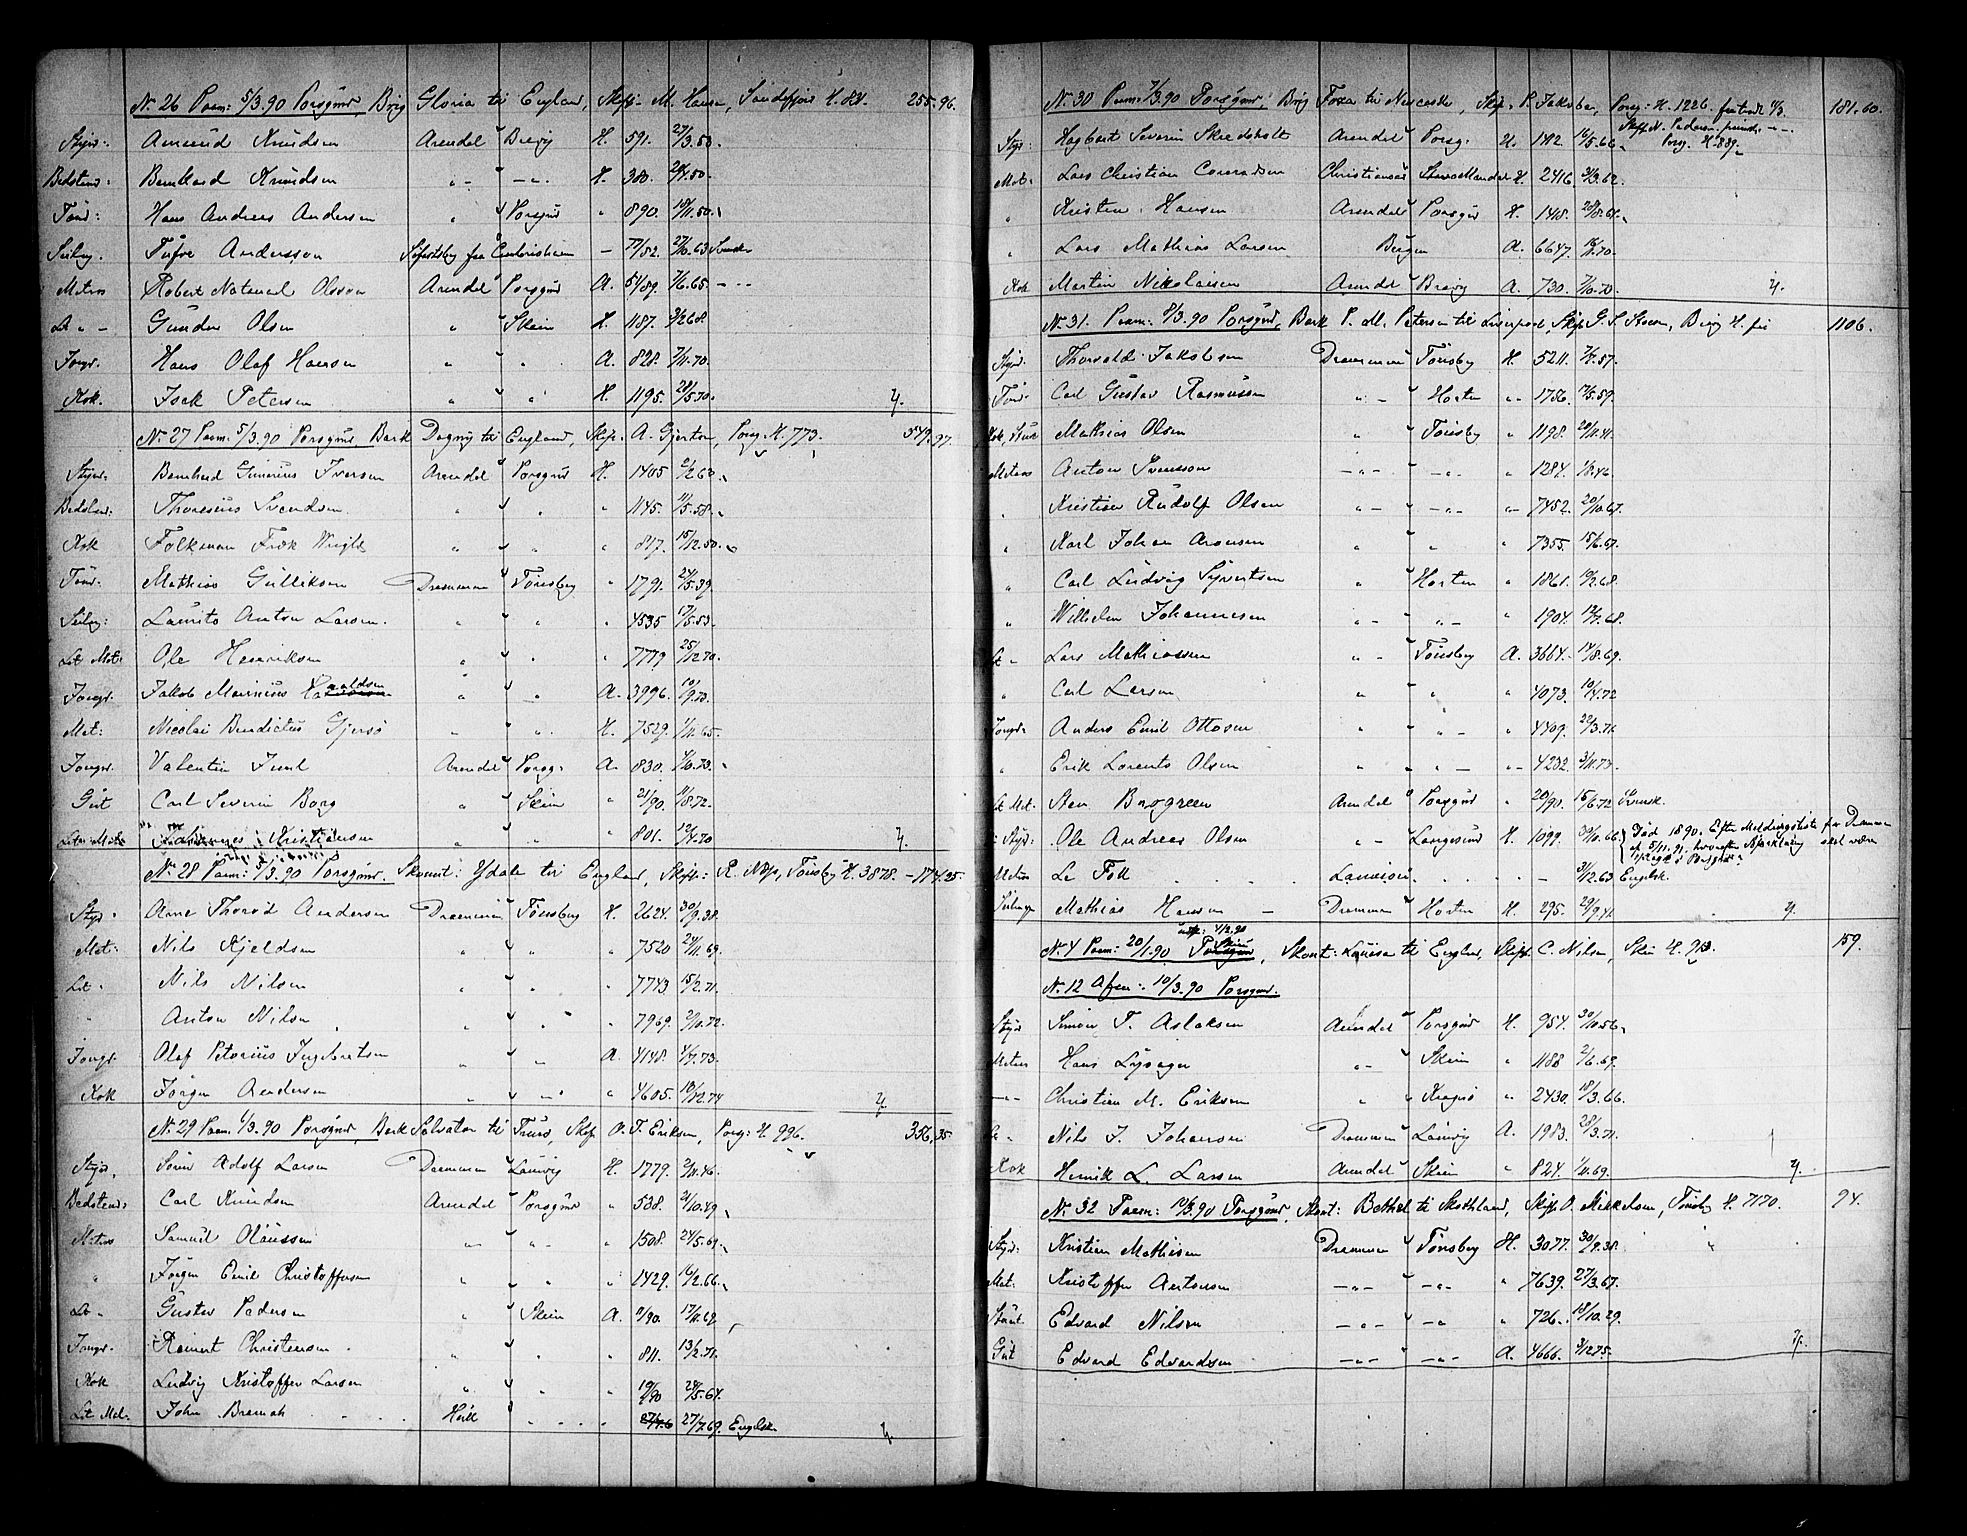 N. 26 Paam: 5/3.90 Porsgrund Brig Gloria til England, Skipr. M. Hansen, Sandefjord H. 255.96.
Styrm: Amund Knudsen Arendal Brevig H. 591. 27/3.50.
Bedstmd: Bernhard Knudsen " - " - H. 380. 50.
Tømr: Hans Andreas Andersen " Porsgrd " 890. 18/11.50.
Seilm. Anderssen fra - 63 Svensk
Matros Robert Natanael Olsson Arendal Porsgrund A. 54/89. 7/6.65. - " -
Let " - Gunder Olsen " Skien H. 1187. 68.
Jungm. Hans Olaf Hansen " " A. 828. 7/11.70.
Kok. Isak Petersen " " H. 1195. 28/5.70. 4.
N. 27 Paam: 5/3.90 Porsgrund Bark Dagny til England, Skipr. A. Gjertsen, Porsg. H. 773. 549.97.
Styrm. Bernhard Gunerius Iversen Arendal Porsgrund H. 1405 2/2.60.
Bedstmd: Thoresius Svendsen " " " 1145. 11/5.58.
Kok Folkman Fredk Wright " " " 817. 15/12.50.
Tømr. Mathias Gulliksen Drammen Tønsberg " 1791. 24/5.39.
Seilm: Lauritz Anton Larsen " " " 4535 17/5.53.
Let Mat: Ole Henriksen " " " 7779 25/12.70.
Jungm. Jakob Marinius Haraldsen " " A. 3996. 10/9.73.
Mat: Nicolai Benedictus Gjersø " " H. 7529. 65.
Jungm. Valentin Juul Arendal Porsg: A. 830. 73.
Gut Carl Severin Borg " Skien " 21/90. 11/8.72.
Let Mat: Johannes Kristiansen " " " 801. 12/4.70 4.
N. 28 Paam: 5/3.90 Porsgrund. Skonnt: Ydale til England, Skipr: R. Tønsberg H. 3878. - 174.25.
Styr. Arne Thorød Andersen Drammen Tønsberg H. 2624. 30/9.38.
Mat: Nils Kjeldsen " " " 7520 24/11.69.
Let " Nils Nilsen " " " 7743. 15/2.71.
" Anton Nilsen " " " 7969. 2/10.72.
Jungm. Olaf Petorius Ingebretsen " " A. 4148. 4/7.73.
Kok Jørgen Andersen " " " 4605. 19/12.74 4.
N. 29 Paam. 6/3.90 Porsgrund, Bark Salvator til Truro, Skipr O. T. Eriksen, Porsg: H. 996. 356.35.
Styrm. Søren Adolf Larsen Drammen Laurvig H. 1779. 2/11.46.
Bedstmd: Carl Knudsen Arendal Porsgrund " 538. 21/10.49.
Matros Samuel Olaussen " " " 1508. 24/5.61.
" Jørgen Emil Christoffersen " " " 1429. 16/2.66.
Let " Gustav Pedersen " Skien A. 11/90. 17/11.69.
Jungm. Reinert Christensen " " " 811. 13/2.71.
Kok Ludvig Kristoffer Larsen " " " 19/90 28/5.64.
Let Mat. John Bramah Hull " " 27/7.69. Engelsk 4.
N. 30 Paam: 7/3.90 Porsgrund, Brig Foxa til Newcastle, Skipr. P. Jakobsen, Porsg: H. 1226. fratraadt 181.60.
Skipr. N. Pedersen - " -
Porsg. H. 889.
Styr: Hagbart Severin Skredsholt Arendal Porsg: H. 1412. 16/5.66.
Mat. Lars Christian Conradsen Christiansand Mandal H. 2416. 62.
" Kristen Hansen Arendal Porsgrd H. 1418. 20/8.61.
" Lars Mathias Larsen Bergen A. 6647. 70.
Kok Martin Nikolaisen Arendal Brevig A. 730. 7/10.73. 4.
N. 31. Paam: 8/3.90 Porsgrund, Bark P. M. Petersen til Liverpool, Skipr G. S. Brevig H. 1106.
Styrm. Thorvald Jakobsen Drammen Tønsberg H. 5211. 57.
Tømr. Carl Gustav Rasmussen " - " Horten " 1756. 17/5.59.
Kok, Stuert Mathias Olsen " Tønsberg " 1198. 20/11.41.
Matros Anton Svensson - " - - " - " 1284. 46.
" Kristian Rudolf Olsen " - - " - " 7452. 20/10.67.
" Karl Johan Aronsen " " " 7355. 15/6.67.
" Carl Ludvig Syvertsen " Horten " 1861. 10/2.68.
" Wilhelm Johannesen " - " - " 1904. 12/7.68.
Let " Lars Mathiassen " - Tønsberg A. 3664. 14/8.69.
" Carl Larsen " " " 4073. 10/4.72
Jungm Anders Emil Ottosen " " - " 4409. 22/3.74
" Erik Lorents Olsen " " - " 4232. 3/11.73.
Let Mat. Sten Brogreen Arendal Porsgrund " 20/90. 15/6.72 Svensk.
Styr: Ole Andreas Olsen " - Langesund H. 1099. 30/10.66. Død 1890. Efter Meldingsliste fra Drammen af 5/11.91.
Matros Le Folk . . . . . 3/12.63 Engelsk.
Seilm. Mathias Hansen - Drammen Horten H. 295. 29/9.41. 4.
4/2.90
N. 4 Paam: 20/1.90 Skien, Skonnt: Louise til England, Skipr. C. Nilsen, Skien H. 913. 159.
N. 12 Afm: 10/3.90 Porsgrund.
Styr. Simon T. Aslaksen Arendal Porsgrund H. 954. 30/10.56.
Matros Hans Lysager " - Skien " 1188 2/6.69.
- " - Christian M. Eriksen " Kragerø " 2430. 18/3.66.
Let " Nils J. Johansen Drammen Laurvig A. 1983. 28/3.71.
Kok Henrik L. Larsen Arendal Skien " 824. 69. 4.
N. 32 Paam: 3.90 Porsgrund, Skonnt: Bethel til Skotland, Skipr. O. Mikkelsen, Tønsberg H. 7170. 94.
Styr: Kristian Mathisen Drammen Tønsberg H. 3077. 30/9.38.
Mat. Kristoffer Antonsen - " - - " - " 7639. 27/3.67.
Edvard Nilsen - " - - " - " 726. 18/10.29.
Gut Edvard Edvardsen - " - - " - A. 4666. 3/12.75. 4.